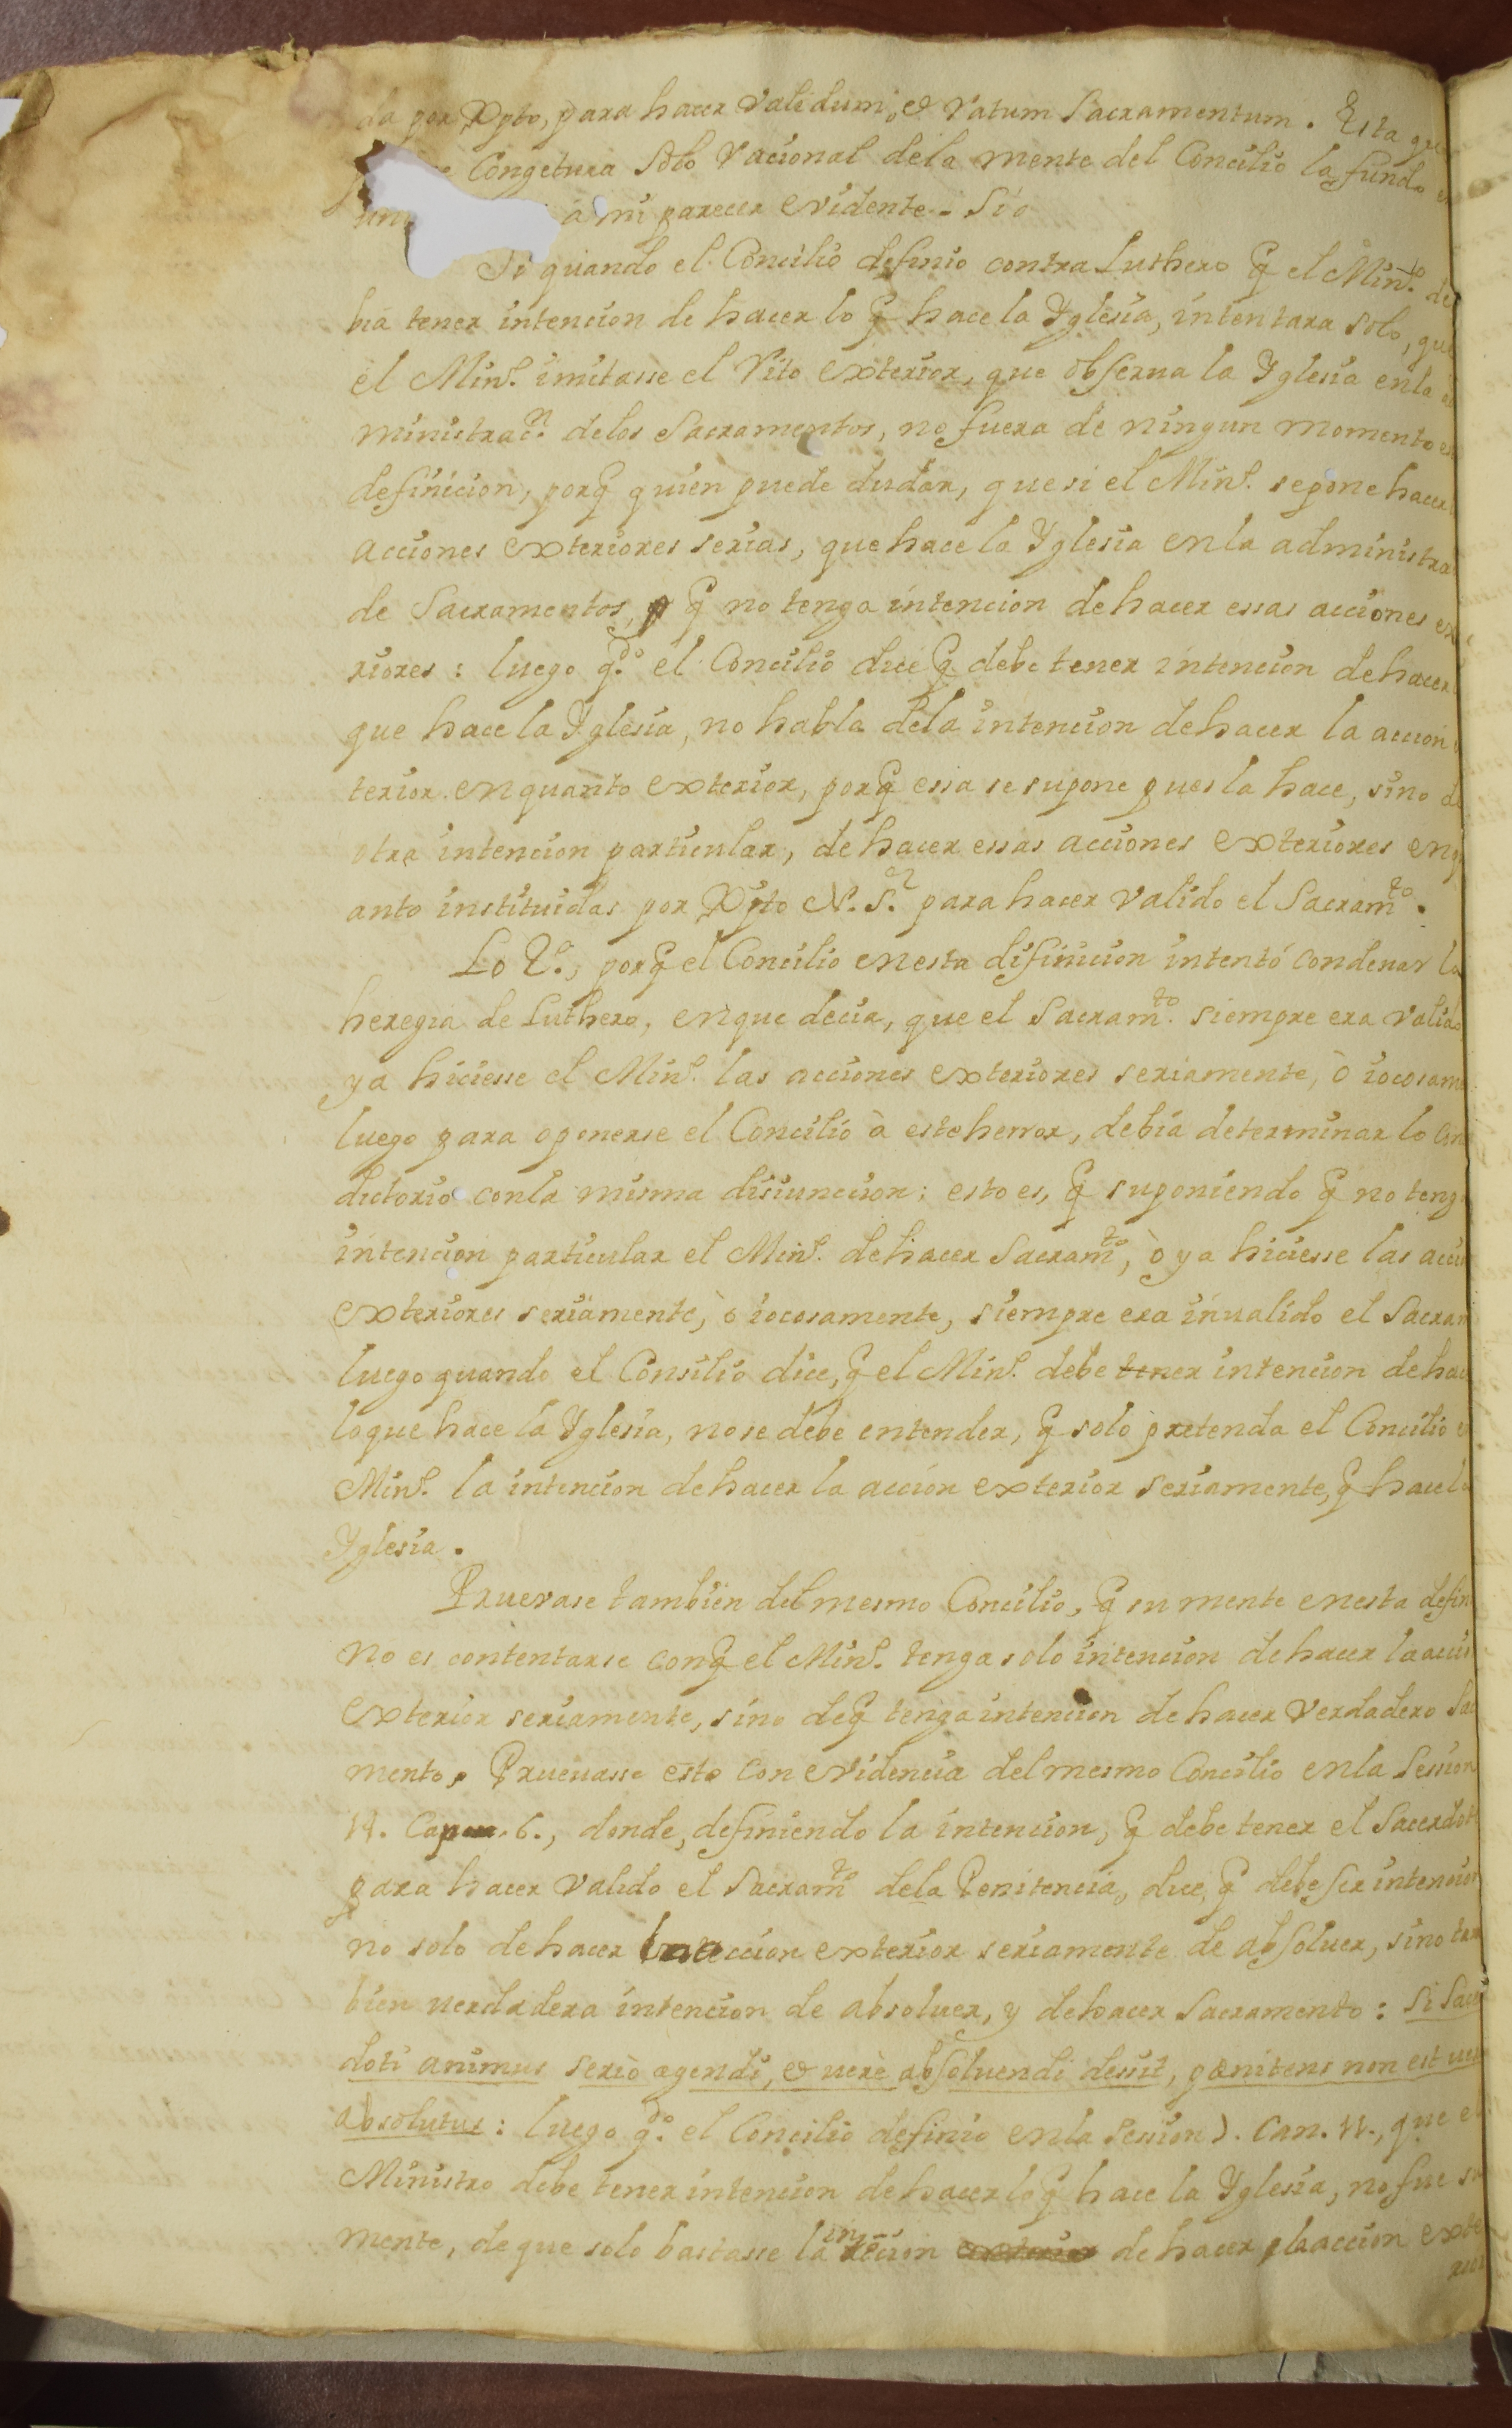 da por Xpto, para hacer validum, & ratum Sacramentum. Esta que
Congetura solo racional dela mente del Concilio la fundo
à mi parecer evidente. Sió
Si quando el Concilio definio contra Luthero q̃ el Min.º de
bia tener intencion de hacer lo q̃ hace la Yglesia, intentara solo, que
el Min.º imitasse el Rito exterior, que obserua la Yglesia enla
ministrac.n delos Sacramentos, no fuera de ningun momento
definicion, porq̃ quien puede dudar, que si el Min.º se pone hacer
acciones exteriores serias, que hace la Yglesia enla administra
de Sacramentos, q̃ no tenga intencion de hacer essas acciones ex
riores: luego q.do el Concilio dice q̃ debe tener intencion de hacer
que hace la Yglesia, no habla dela intencion de hacer la accion
terior enquanto exterior, porq̃ essa se supone pues la hace, sino de
otra intencion particular, de hacer essas acciones exteriores enqu
anto instituidas por Xpto N. S.r para hacer valido el Sacram.to.
Lo 2.º, porq̃ el Concilio enesta difinicion intentó condenar la
heregia de Luthero, enque decia, que el Sacram.to siempre era valido
ya hiciesse el Min.º las acciones exteriores seriamente, ò iocosam
luego para oponerse el Concilio à este herror, debia determinar lo con
dictorio conla misma disiuncion: esto es, q̃ suponiendo q̃ no teng
intencion particular el Min.º de hacer Sacram.to, ò ya hiciesse las acci
exteriores seriamente, ò iocosamente, siempre era inualido el Sacram
luego quando el Consilio dice, q̃ el Min.º debe tener intencion de hac
loque hace la Yglesia, nose debe entender, q̃ solo pretenda el Concilio
Min.º la intencion de hacer la accion exterior seriamente, q̃ hace la
Yglesia.
Pruevase tambien del mesmo Concilio, q̃ su mente enesta defin
no es contentarse conq̃ el Min.º tenga solo intencion de hacer la acci
exterior seriamente, sino deq̃ tenga intencion de hacer verdadero Sac
mento. Pruevasse esto con evidencia del mesmo Concilio enla Session
14. Cap. 6., donde, definiendo la intencion, q̃ debe tener el Sacerdot
para hacer valido el Sacram.to dela Penitencia, dice, q̃ debe ser intencion
no solo de hacer la accion exterior seriamente de absoluer, sino tam
bien verdadera intencion de absoluer, y de hacer Sacramento: Si Sacer
doti animus seriò agendi, & verè absoluendi dessit, pænitens non est ver
absolutus: luego q.do el Concilio definio enla Session 7. Can. 11., que el
Ministro debe tener intencion de hacer lo q̃ hace la Yglesia, no fue su
mente, de que solo bastasse la intēcion de hacer la accion exte
rior